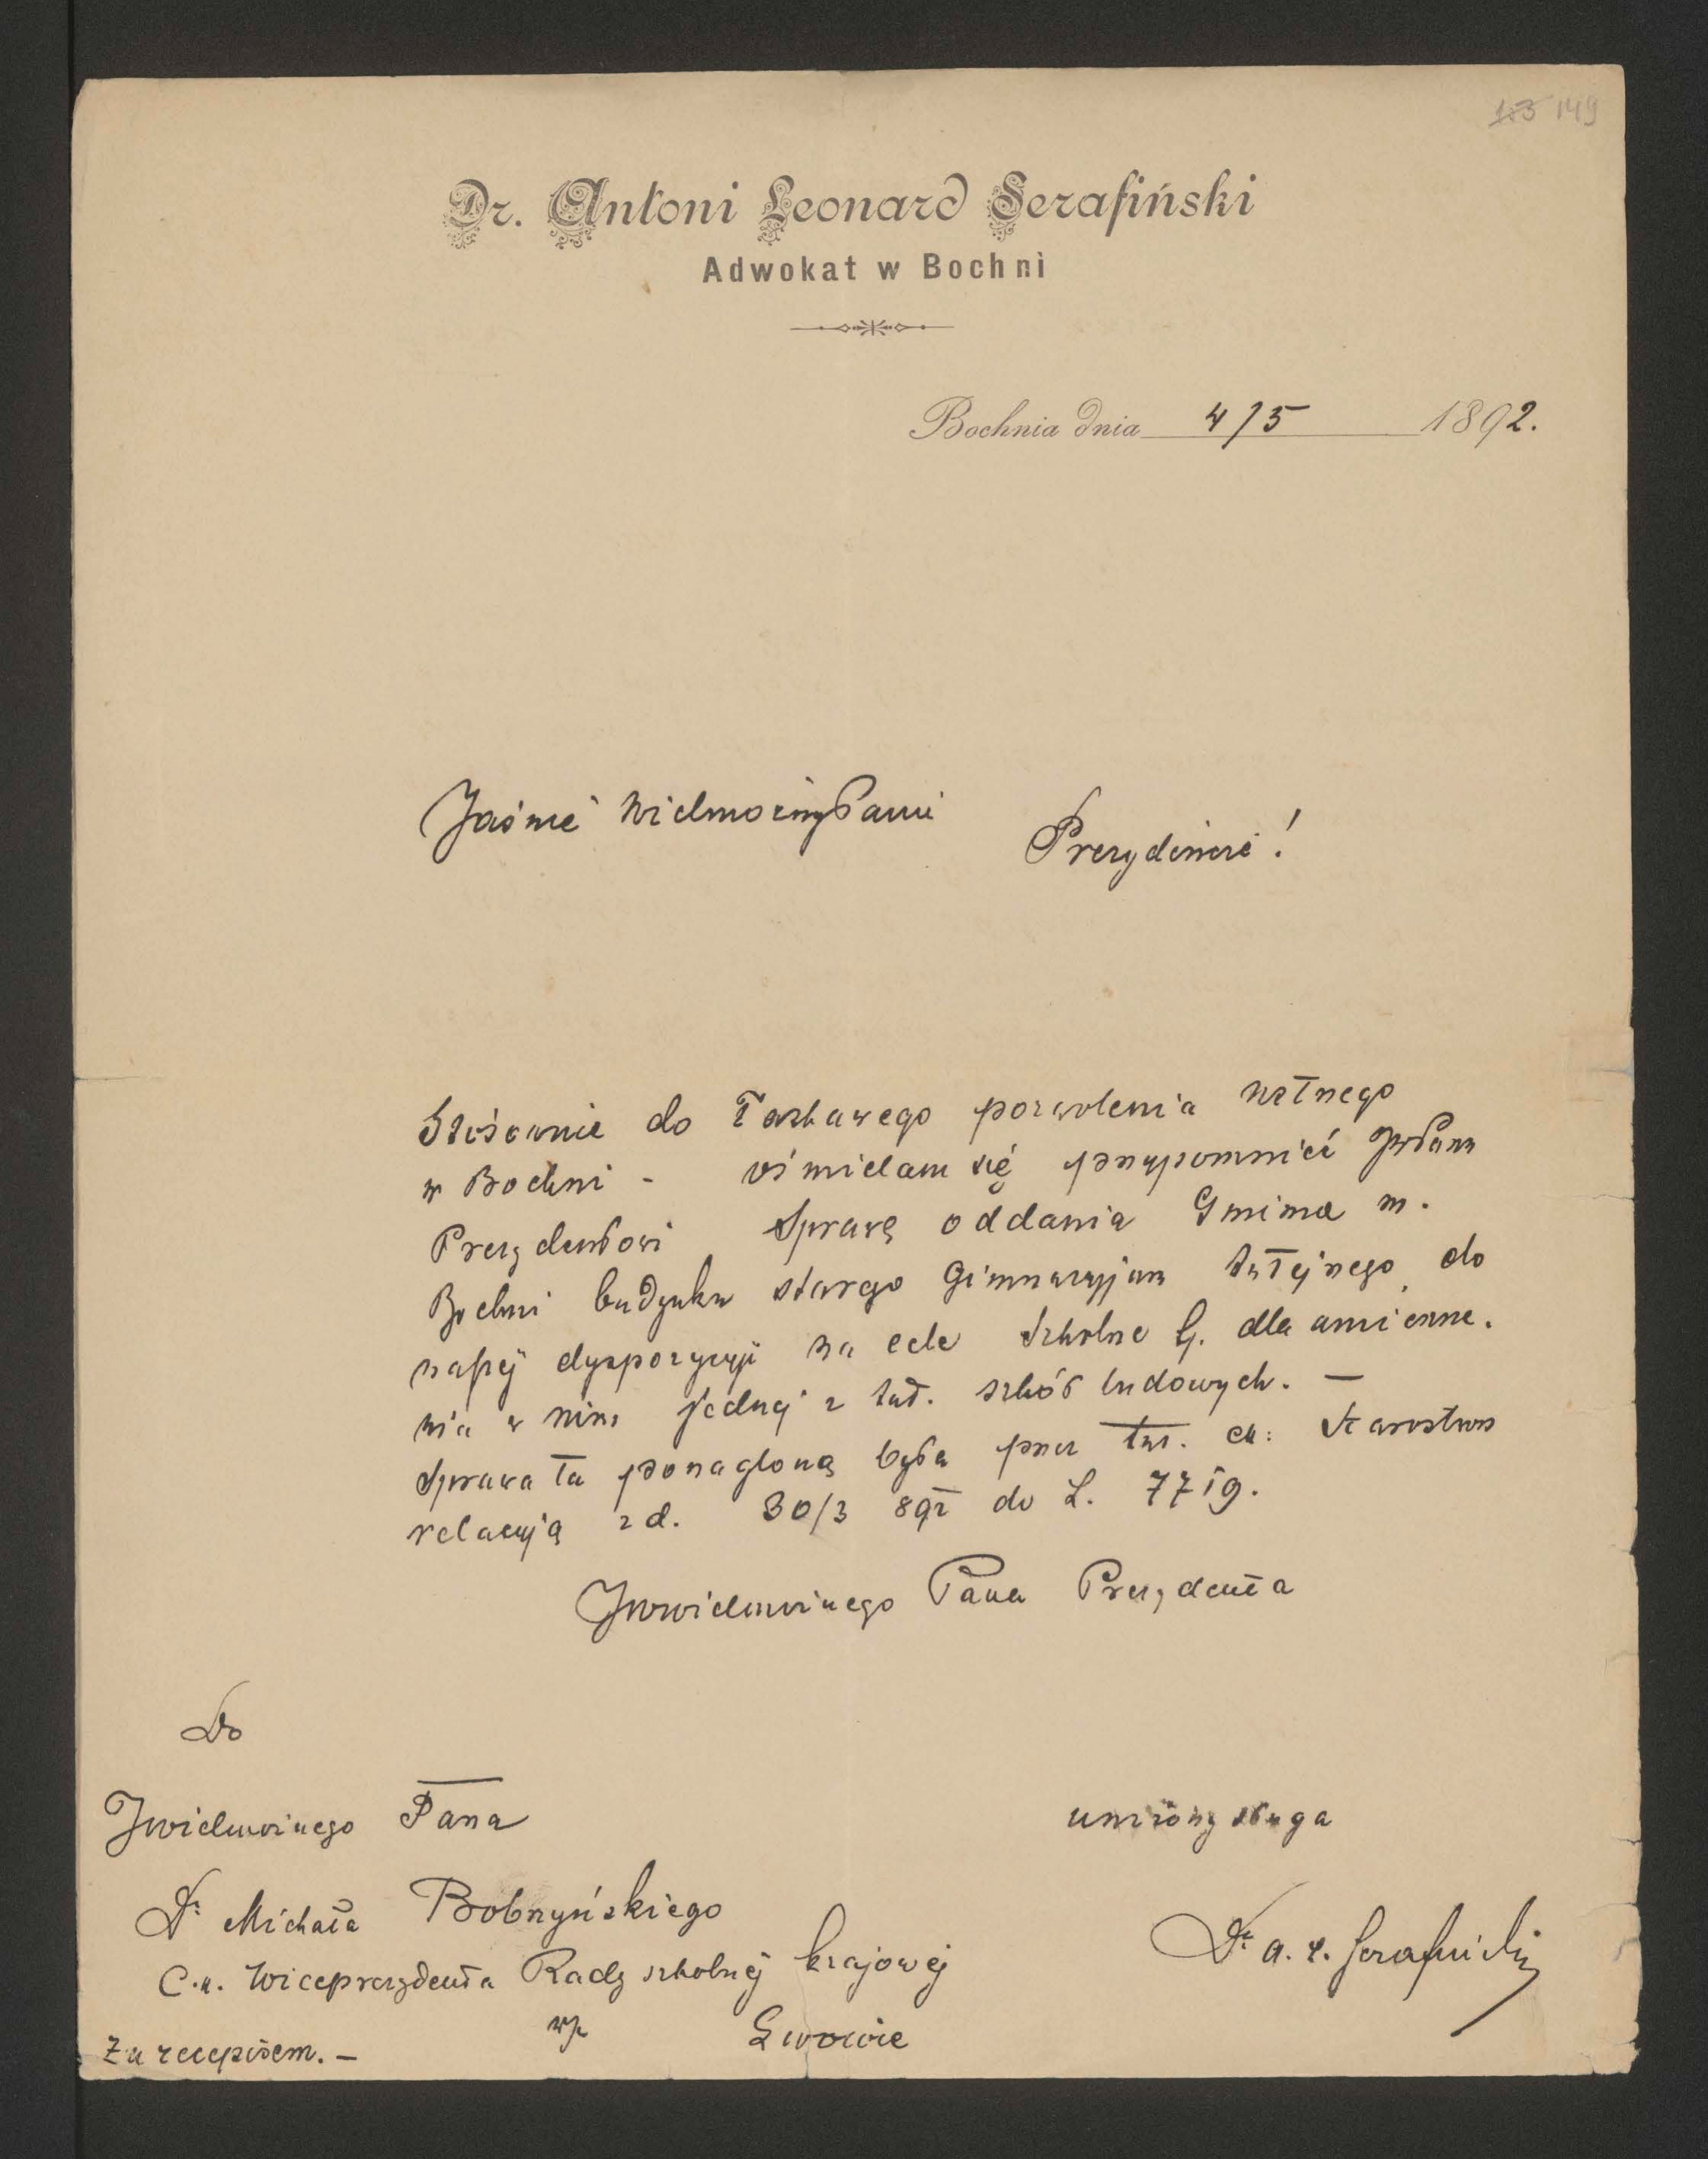 183 149
Dr. Antoni Leonard Serafiński
Adwokat w Bochni
Bochnia dnia 4/5 1892.
Jaśnie Wielmożny Panie
Prezydencie!
Stósownie do Łaskawego pozwolenia ustnego
w Bochni - ośmielam się przypomnieć JWPanu
Prezydentowi sprawę oddania Gminie m.
Bochni budynku starego Gimnazyjum tutejszego do
naszej dyspozycyji na cele szkolne dla umieszcze.
nia w nim jednej z tut. szkół ludowych. —
Sprawa ta ponagloną była przez tut. ck: Starostwo
relacyją z d. 30/3 892 do L. 7719.
JWwielmożnego Pana Prezydenta
Do
JWielmożnego Pana
Dr Michała Bobrzyńskiego
C.k. Wiceprezydenta Rady szkolnej krajowej
we Lwowie
Za recepisem. —
uniżony sługa
Dr A. L. Serafiński